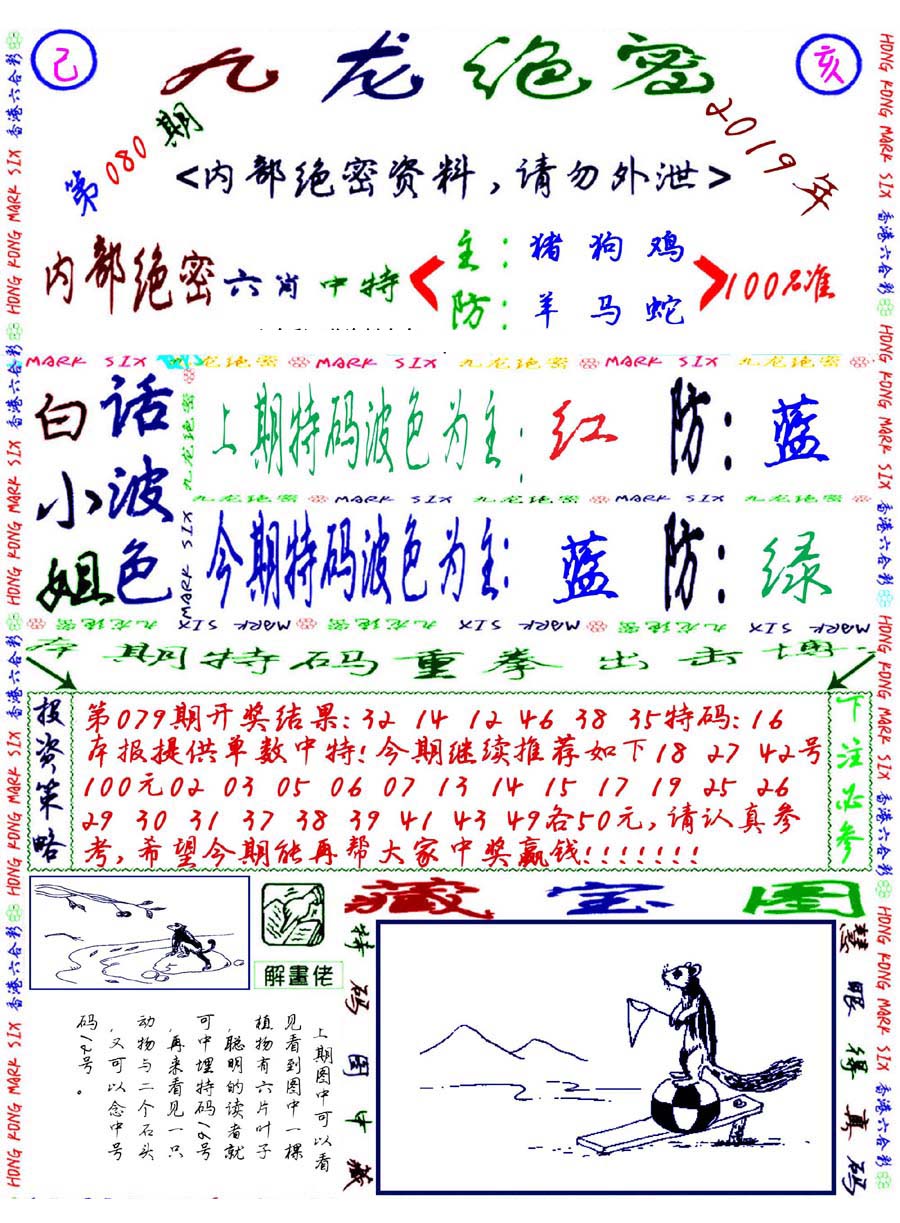 己
九龙绝密
亥
第080期
2019年
<内部绝密资料，请勿外泄>
内部绝密六肖中特
主：猪狗鸡
防：羊马蛇
100%准
MARK SIX 九龙绝密 MARK SIX 九龙绝密 MARK SIX 九龙绝密
白小姐
话波色
上期特码波色为主：红 防：蓝
九龙绝密 MARK SIX 九龙绝密 MARK SIX 九龙绝密
今期特码波色为主：蓝 防：绿
九龙绝密
MARK SIX
九龙绝密 MARK SIX 九龙绝密 MARK SIX 九龙绝密 MARK SIX
本期特码重拳出击博
投资策略
第079期开奖结果：32 14 12 46 38 35特码：16
本报提供单数中特！今期继续推荐如下18 27 42号
100元02 03 05 06 07 13 14 15 17 19 25 26
29 30 31 37 38 39 41 43 49各50元，请认真参
考，希望今期能再帮大家中奖赢钱！！！！！！！
下注必参
解畫佬
藏宝图
特码图中藏
慧眼得真码
上期图中可以看
见看到图中一棵
植物有六片叶子
，聪明的读者就
可中埋特码16号
，再来看见一只
动物与二个石头
，又可以念中号
码12号。
香港六合彩 HONG KONG MARK SIX 香港六合彩 HONG KONG MARK SIX 香港六合彩 HONG KONG MARK SIX 香港六合彩 HONG KONG MARK SIX
HONG KONG MARK SIX 香港六合彩 HONG KONG MARK SIX 香港六合彩 HONG KONG MARK SIX 香港六合彩 HONG KONG MARK SIX 香港六合彩